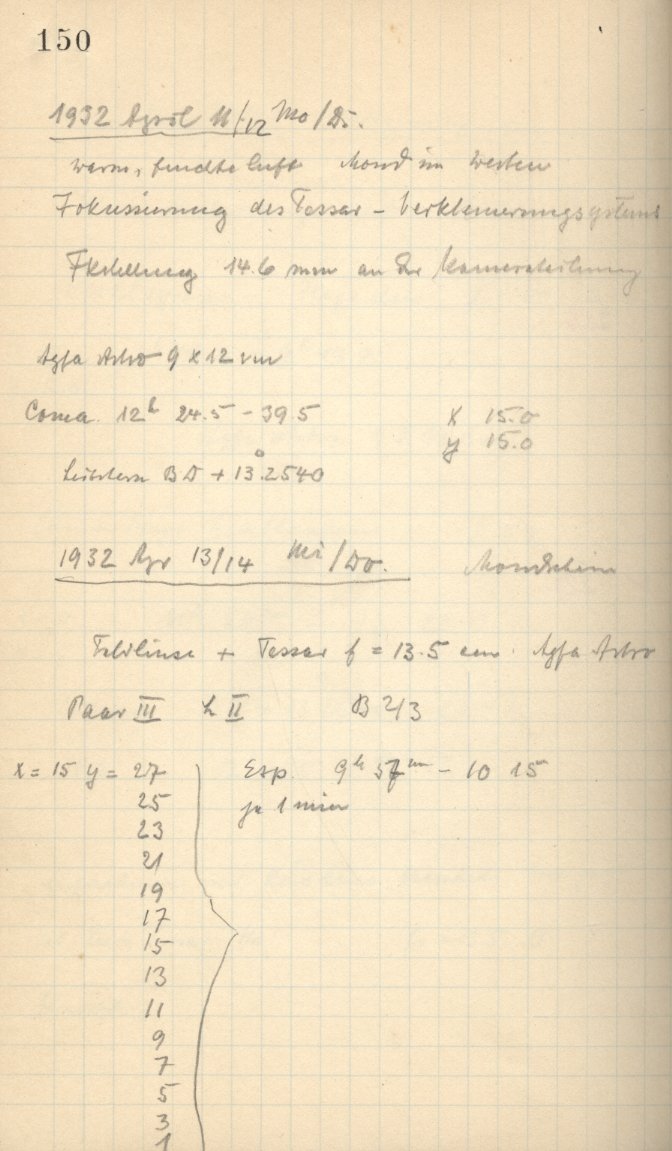 150
1932 April 11/12 Mo/Di.
warm, feuchte Luft Mond im Westen
Fokussierung des Tessar - Verkleinerungssystems
14.6 mm an der Kamerateilung
Agfa Astro 9 x 12 cm
Coma. 12h 24.5 - 39.5 X 15.0
y 15.0
Leitstern BD + 13°.2540
1932 Apr 13/14 Mi/Do. Mondschein
Feldlinse + Tessar f = 13.5 cm. Agfa Astro
Paar III L II B 2/3
X = 15 y = 27 Exp. 9h 57m - 10 15
25 je 1 min
23
21
19
17
15
13
11
9
7
5
3
1